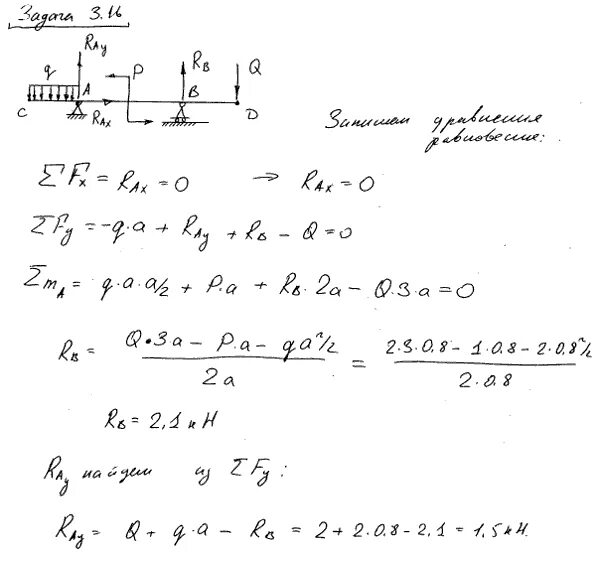 Задача 3.16
R_Ay
q
A
P
R_B
B
Q
C
R_Ax
D
Запишем уравнения
равновесие:
ΣF_x = R_Ax = 0 → R_Ax = 0
ΣF_y = -q·a + R_Ay + R_B - Q = 0
Σm_A = q·a·a/2 + P·a + R_B·2a - Q·3·a = 0
R_B = (Q•3a - P·a - qa²/2) / 2a = (2·3·0,8 - 1·0,8 - 2·0,8²/2) / 2·0,8
R_B = 2,1 кН
R_Ay найдем из ΣF_y:
R_Ay = Q + q·a - R_B = 2 + 2·0,8 - 2,1 = 1,5 кН.